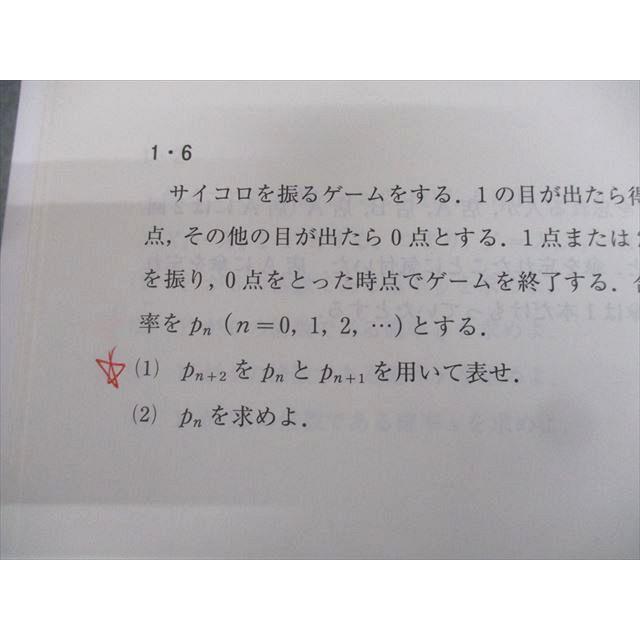 1・6
サイコロを振るゲームをする．1の目が出たら得
点，その他の目が出たら0点とする．1点または
を振り，0点をとった時点でゲームを終了する．
率を pₙ (n＝0, 1, 2, …) とする．
(1) pₙ₊₂ を pₙ と pₙ₊₁ を用いて表せ．
(2) pₙ を求めよ．